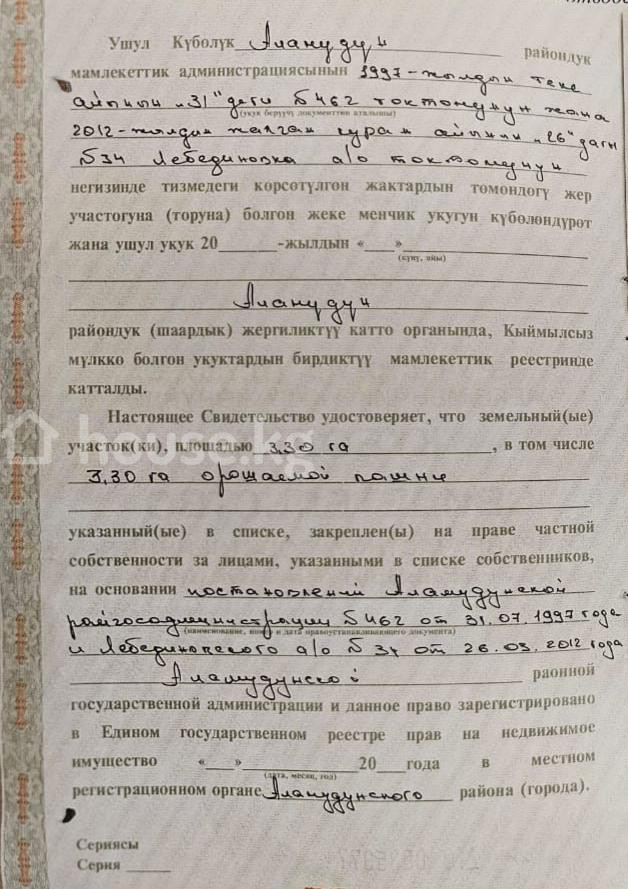 Ушул Күбөлүк Аламудун райондук
мамлекеттик администрациясынын 1997-жылдын теке
айынын "31" деги №462 токтомунун жана
(укук берүүчү документтин аталышы)
2012-жылдын жалган куран айынын "26" дагы
№34 Лебединовка а/о токтомунун
негизинде тизмедеги көрсөтүлгөн жактардын төмөндөгү жер
участогуна (торуна) болгон жеке менчик укугун күбөлөндүрөт
жана ушул укук 20____-жылдын «___»
(күнү, айы)
Аламудун
райондук (шаардык) жергиликтүү каттоо органында, Кыймылсыз
мүлккө болгон укуктардын бирдиктүү мамлекеттик реестринде
катталды.
Настоящее Свидетельство удостоверяет, что земельный(ые)
участок(ки), площадью 3,30 га, в том числе
3,30 га орошаемой пашни
house.kg
указанный(ые) в списке, закреплен(ы) на праве частной
собственности за лицами, указанными в списке собственников,
на основании постановлений Аламудунской
райгосадминистрации №462 от 31.07.1997 года
(наименование, номер и дата правоустанавливающего документа)
и Лебединовского а/о №34 от 26.03.2012 года
Аламудунской районной
государственной администрации и данное право зарегистрировано
в Едином государственном реестре прав на недвижимое
имущество «___» ________ 20___года в местном
(дата, месяц, год)
регистрационном органе Аламудунского района (города).
Сериясы
Серия ____